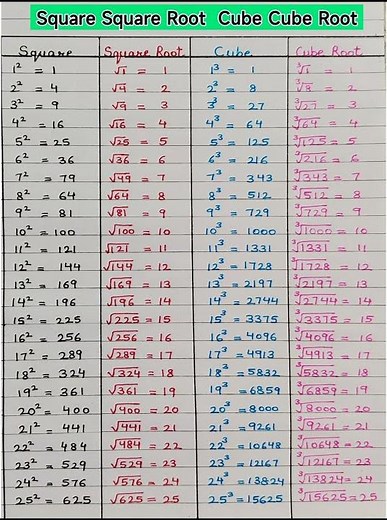 Square Square Root Cube Cube Root
Square Square Root Cube Cube Root
1² = 1 √1 = 1 1³ = 1 ∛1 = 1
2² = 4 √4 = 2 2³ = 8 ∛8 = 2
3² = 9 √9 = 3 3³ = 27 ∛27 = 3
4² = 16 √16 = 4 4³ = 64 ∛64 = 4
5² = 25 √25 = 5 5³ = 125 ∛125 = 5
6² = 36 √36 = 6 6³ = 216 ∛216 = 6
7² = 79 √49 = 7 7³ = 343 ∛343 = 7
8² = 64 √64 = 8 8³ = 512 ∛512 = 8
9² = 81 √81 = 9 9³ = 729 ∛729 = 9
10² = 100 √100 = 10 10³ = 1000 ∛1000 = 10
11² = 121 √121 = 11 11³ = 1331 ∛1331 = 11
12² = 144 √144 = 12 12³ = 1728 ∛1728 = 12
13² = 169 √169 = 13 13³ = 2197 ∛2197 = 13
14² = 196 √196 = 14 14³ = 2744 ∛2744 = 14
15² = 225 √225 = 15 15³ = 3375 ∛3375 = 15
16² = 256 √256 = 16 16³ = 4096 ∛4096 = 16
17² = 289 √289 = 17 17³ = 4913 ∛4913 = 17
18² = 324 √324 = 18 18³ = 5832 ∛5832 = 18
19² = 361 √361 = 19 19³ = 6859 ∛6859 = 19
20² = 400 √400 = 20 20³ = 8000 ∛8000 = 20
21² = 441 √441 = 21 21³ = 9261 ∛9261 = 21
22² = 484 √484 = 22 22³ = 10648 ∛10648 = 22
23² = 529 √529 = 23 23³ = 12167 ∛12167 = 23
24² = 576 √576 = 24 24³ = 13824 ∛13824 = 24
25² = 625 √625 = 25 25³ = 15625 ∛15625 = 25